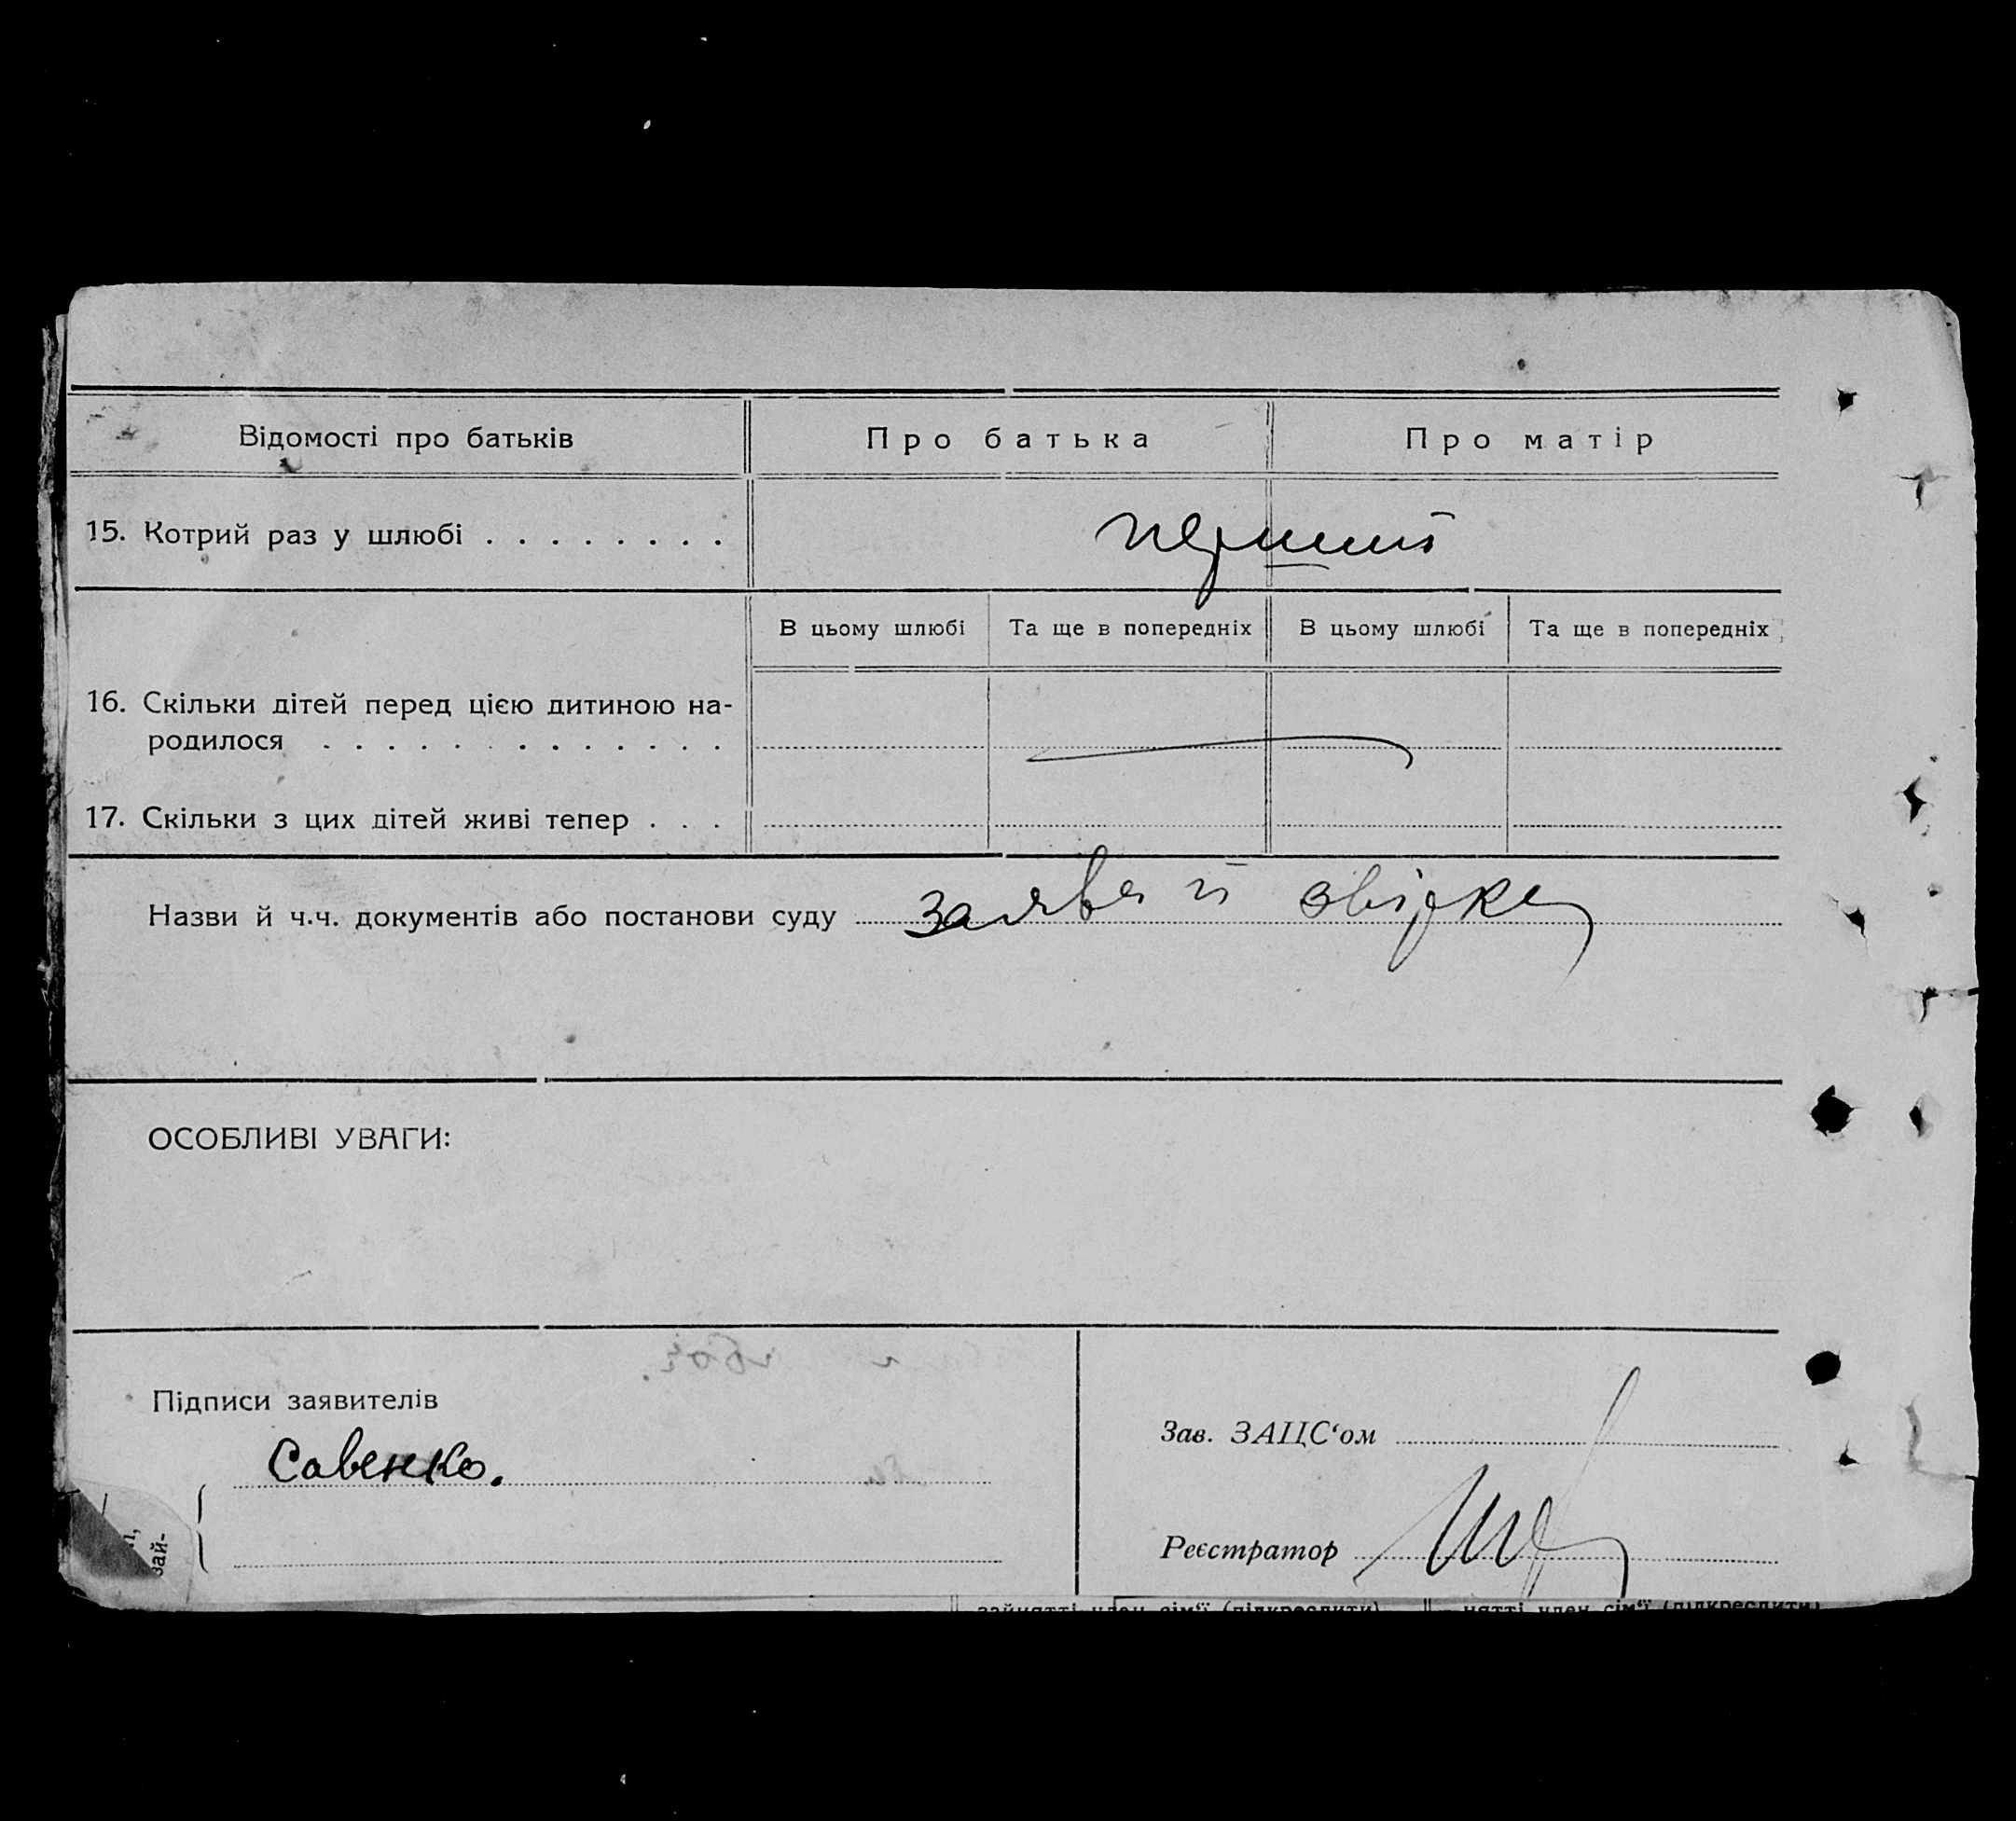 Відомості про батьків Про батька Про матір
15. Котрий раз у шлюбі . . . . . . . . перший
В цьому шлюбі Та ще в попередніх В цьому шлюбі Та ще в попередніх
16. Скільки дітей перед цією дитиною на-
родилося . . . . . . . . . . . . .
17. Скільки з цих дітей живі тепер . . .
Назви й ч.ч. документів або постанови суду заява й звірка
ОСОБЛИВІ УВАГИ:
Підписи заявителів
Савенко.
Зав. ЗАЦС‘ом
Реєстратор
зай-
зайнятті член сім‘ї (підкреслити) нятті член сім‘ї (підкреслити)